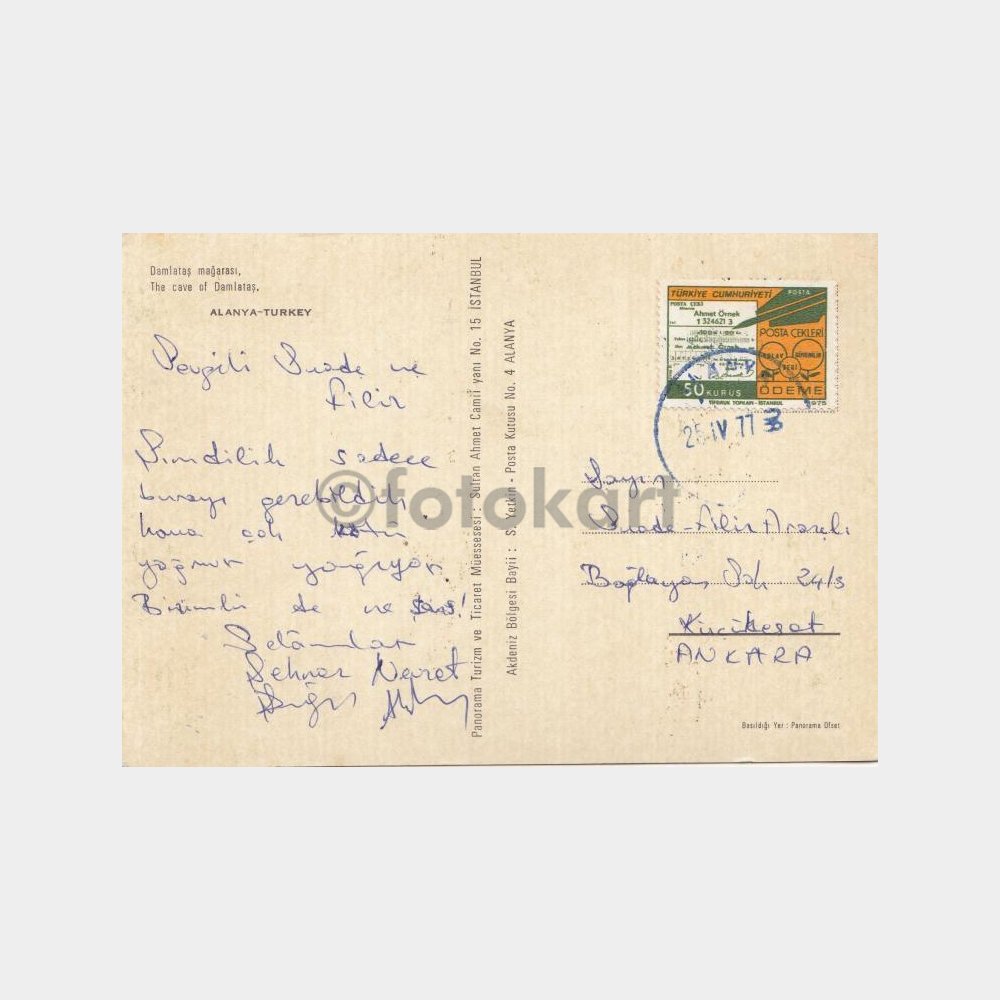 Damlataş mağarası,
The cave of Damlataş.
ALANYA-TURKEY
Sevgili Suade ve
Filiz
Şimdilik sadece
burayı gezebildik.
hava çok kötü
yağmur yağıyor.
Bizimki de ne şans!
Selâmlar
Panorama Turizm ve Ticaret Müessesesi : Sultan Ahmet Camii yanı No. 15 İSTANBUL
Akdeniz Bölgesi Bayii : S. Yetkin - Posta Kutusu No. 4 ALANYA
TÜRKİYE CUMHURİYETİ POSTA
POSTA ÇEKİ
Ahmet Örnek
1324621 3
POSTA ÇEKLERİ
KOLAY GÜVENİLİR
SERİ
ÖDEME
50 KURUŞ
1975
25 IV 77
Sayın
Suade - Filiz
24/3
Küçükesat
ANKARA
Basıldığı Yer : Panorama Ofset
©fotokart